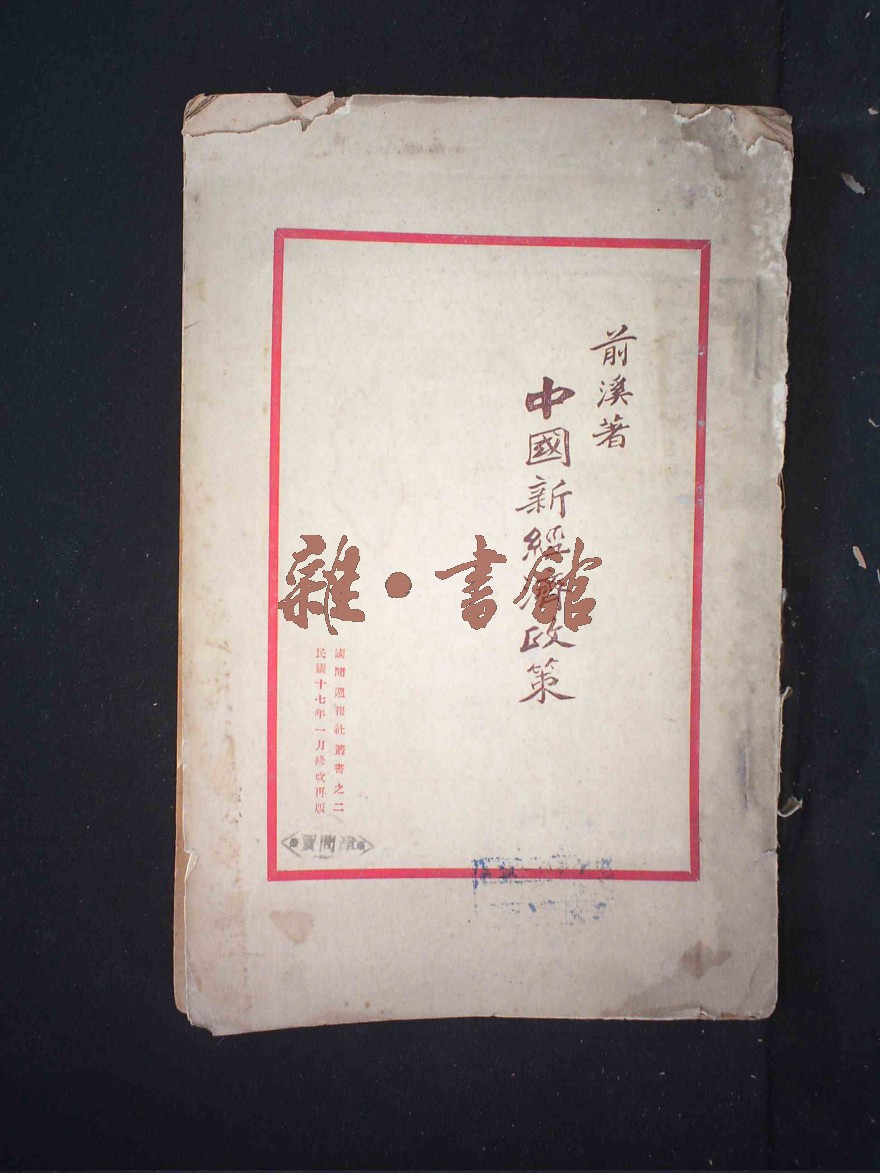 前溪著
中國新經濟政策
雜·書館
國聞週報社叢書之二
民國十七年一月修改再版